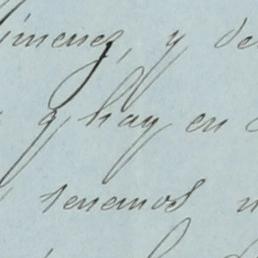 imenez, y de
q hay en
tenemos